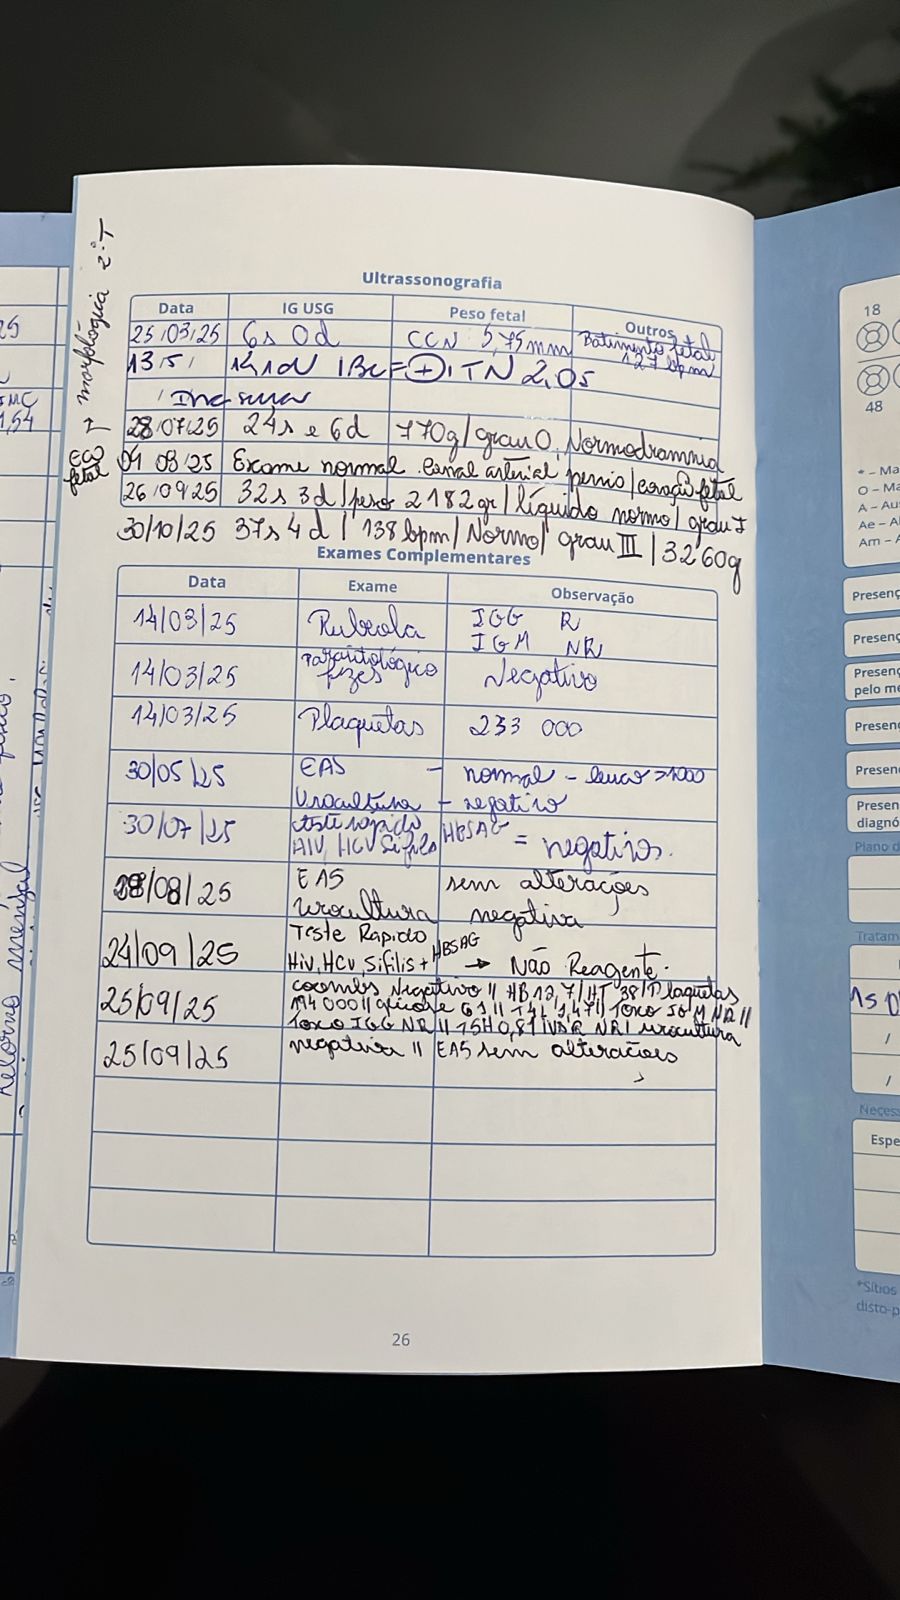 morfológica 2ºT
ECO fetal
Ultrassonografia
Data IG USG Peso fetal Outros
25/03/25 6s 0d CCN 5,75mm Batimento fetal 127 bpm
13/5/ BCF=(+) TN 2,05
28/07/25 24s e 6d 770g/grau 0. Normodramnia
04 08/25 Exame normal. Canal arterial pervio/coração fetal
26/09/25 32s 3d/peso 2182gr/líquido normo/grau I
30/10/25 37s 4d | 138bpm/Normo/ grau III | 3260g
Exames Complementares
Data Exame Observação
14/03/25 Rubeola IGG R
IGM NR
14/03/25 Parasitológico fezes Negativo
14/03/25 Plaquetas 233 000
30/05/25 EAS - normal - leuco
Urocultura - negativo
30/07/25 teste rápido
HIV, HCV Sifilis HBSAG = negativos.
28/08/25 EAS sem alterações
urocultura negativa
24/09/25 Teste Rapido
HiV, HCV, Sifilis + HBSAG → Não Reagente.
25/09/25 coombs Negativo || HB 12,7/HT 38/Plaquetas
194 000 || glicose 61 || T4L 1,47 || Toxo IGM NR ||
Toxo IGG NR || TSH 0,8 | VDRL NR | urocultura
25/09/25 negativa || EAS sem alterações
26
25
IMC
1,54
Retorno mensal
18
48
* - Ma
O - Ma
A - Au
Ae - A
Am - A
Presenç
Presenç
Presenç
pelo mé
Presenç
Presen
Presen
diagnó
Plano d
Tratam
/
/
Necess
Espe
*Sítios
disto-p